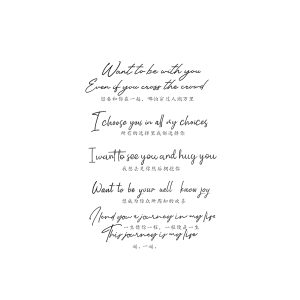 Want to be with you
Even if you cross the crowd
想要和你在一起，哪怕穿过人海万里
I choose you in all my choices
所有的选择里我都选择你
I want to see you and hug you
我想去见你然后拥抱你
Want to be your well know joy
想成为你众所周知的欢喜
I lend you a journey in my life
一生借你一程，一程便是一生
This journey is my life